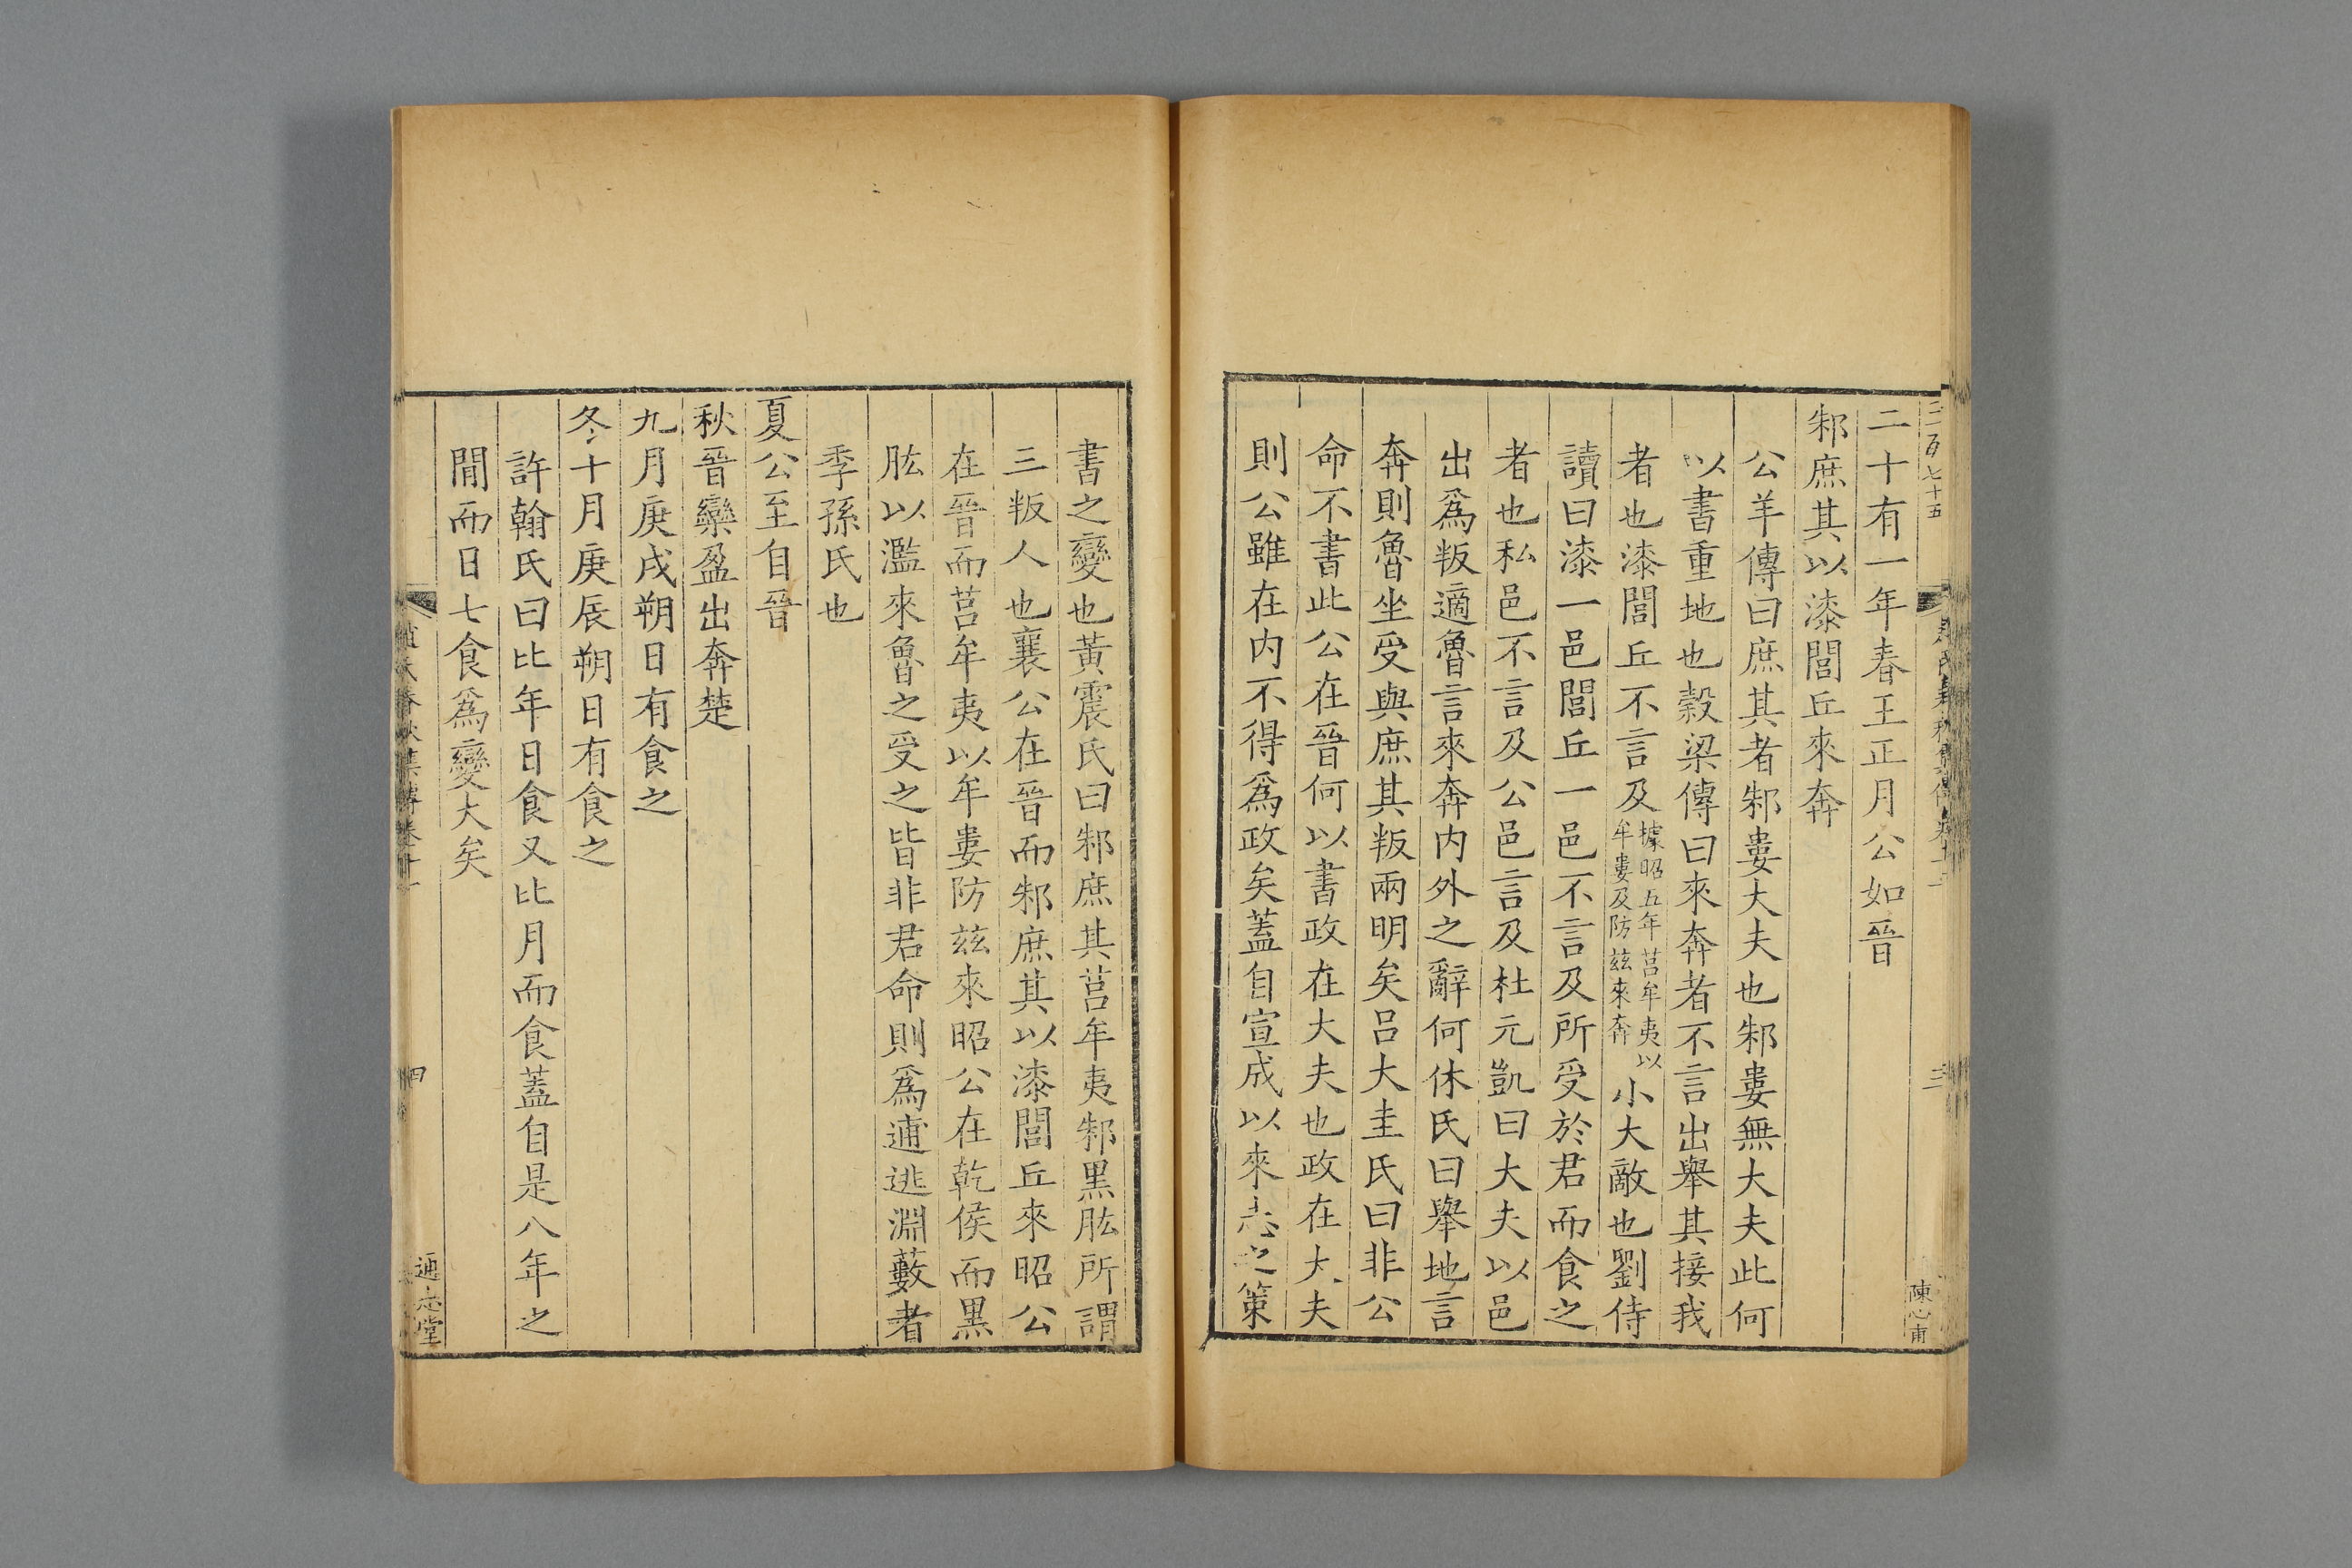 二百七十五
陳心甫
二十有一年春王正月公如晉
邾庶其以漆閭丘來奔
公羊傳曰庶其者邾婁大夫也邾婁無大夫此何
以書重地也穀梁傳曰來奔者不言出舉其接我
者也漆閭丘不言及據昭五年莒牟夷以牟婁及防茲來奔小大敵也劉侍
讀曰漆一邑閭丘一邑不言及所受於君而食之
者也私邑不言及公邑言及杜元凱曰大夫以邑
出爲叛適魯言來奔內外之辭何休氏曰舉地言
奔則魯坐受與庶其叛兩明矣呂大圭氏曰非公
命不書此公在晉何以書政在大夫也政在大夫
則公雖在内不得爲政矣蓋自宣成以來志之策
書之變也黃震氏曰邾庶其莒牟夷邾黑肱所謂
三叛人也襄公在晉而邾庶其以漆閭丘來昭公
在晉而莒牟夷以牟婁防茲來昭公在乾侯而黑
肱以濫來魯之受之皆非君命則爲逋逃淵藪者
季孫氏也
夏公至自晉
秋晉欒盈出奔楚
九月庚戌朔日有食之
冬十月庚辰朔日有食之
許翰氏曰比年日食又比月而食蓋自是八年之
間而日七食爲變大矣
春秋集傳卷十一
四
通志堂